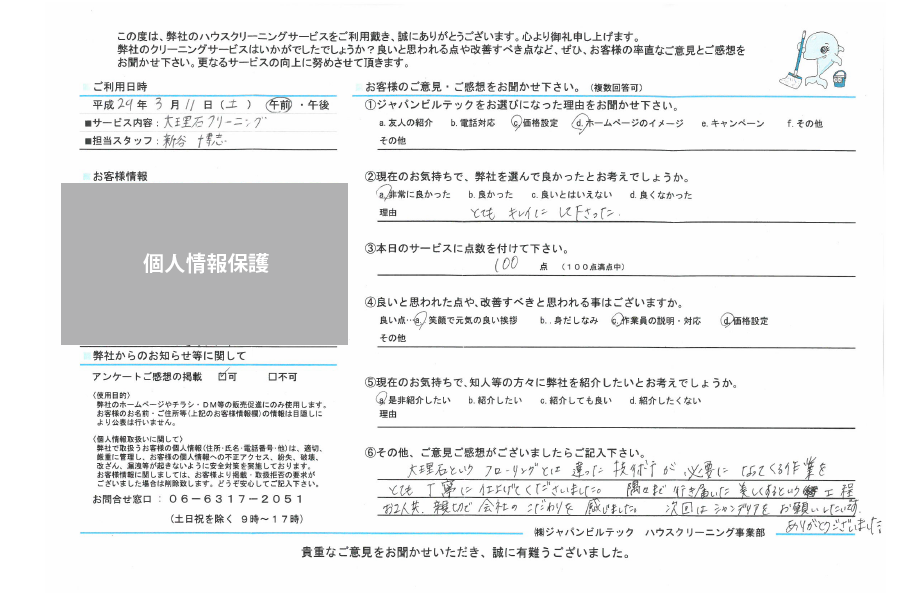 この度は、弊社のハウスクリーニングサービスをご利用戴き、誠にありがとうございます。心より御礼申し上げます。
弊社のクリーニングサービスはいかがでしたでしょうか？良いと思われる点や改善すべき点など、ぜひ、お客様の率直なご意見とご感想を
お聞かせ下さい。更なるサービスの向上に努めさせて頂きます。
ご利用日時
平成 29 年 3 月 11 日 ( 土 ) 午前 ・ 午後
■サービス内容：大理石クリーニング
■担当スタッフ：新谷
お客様情報
個人情報保護
弊社からのお知らせ等に関して
アンケートご感想の掲載 ☑可 □不可
〈使用目的〉
弊社のホームページやチラシ・DM等の販売促進にのみ使用します。
お客様のお名前・ご住所等(上記のお客様情報欄)の情報は目隠しに
より公表は行いません。
〈個人情報取扱いに関して〉
弊社で取扱うお客様の個人情報(住所・氏名・電話番号・他)は、適切、
厳重に管理し、お客様の個人情報への不正アクセス、紛失、破壊、
改ざん、漏洩等が起きないように安全対策を実施しております。
お客様情報に関しましては、お客様より掲載・取扱拒否の要求が
ございました場合は削除致します。どうぞ安心してご記入下さい。
お問合せ窓口： 06-6317-2051
(土日祝を除く 9時～17時)
お客様のご意見・ご感想をお聞かせ下さい。（複数回答可）
①ジャパンビルテックをお選びになった理由をお聞かせ下さい。
a. 友人の紹介 b. 電話対応 c. 価格設定 d. ホームページのイメージ e. キャンペーン f. その他
その他
②現在のお気持ちで、弊社を選んで良かったとお考えでしょうか。
a. 非常に良かった b. 良かった c. 良いとはいえない d. 良くなかった
理由 とても キレイに して下さった.
③本日のサービスに点数を付けて下さい。
100 点 （100点満点中）
④良いと思われた点や、改善すべきと思われる事はございますか。
良い点…a. 笑顔で元気の良い挨拶 b.. 身だしなみ c. 作業員の説明・対応 d. 価格設定
その他
⑤現在のお気持ちで、知人等の方々に弊社を紹介したいとお考えでしょうか。
a. 是非紹介したい b. 紹介したい c. 紹介しても良い d. 紹介したくない
理由
⑥その他、ご意見ご感想がございましたらご記入下さい。
大理石という フローリングとは 違った 技術が 必要に なってくる作業を
とても 丁寧に 仕上げてくださいました。 隅々まで 行き届いた 美しくするという 工程
お2人共、親切で 会社の こだわりを 感じました。 次回は シャンデリアを お願いしたいです
ありがとうございました
㈱ジャパンビルテック ハウスクリーニング事業部
貴重なご意見をお聞かせいただき、誠に有難うございました。